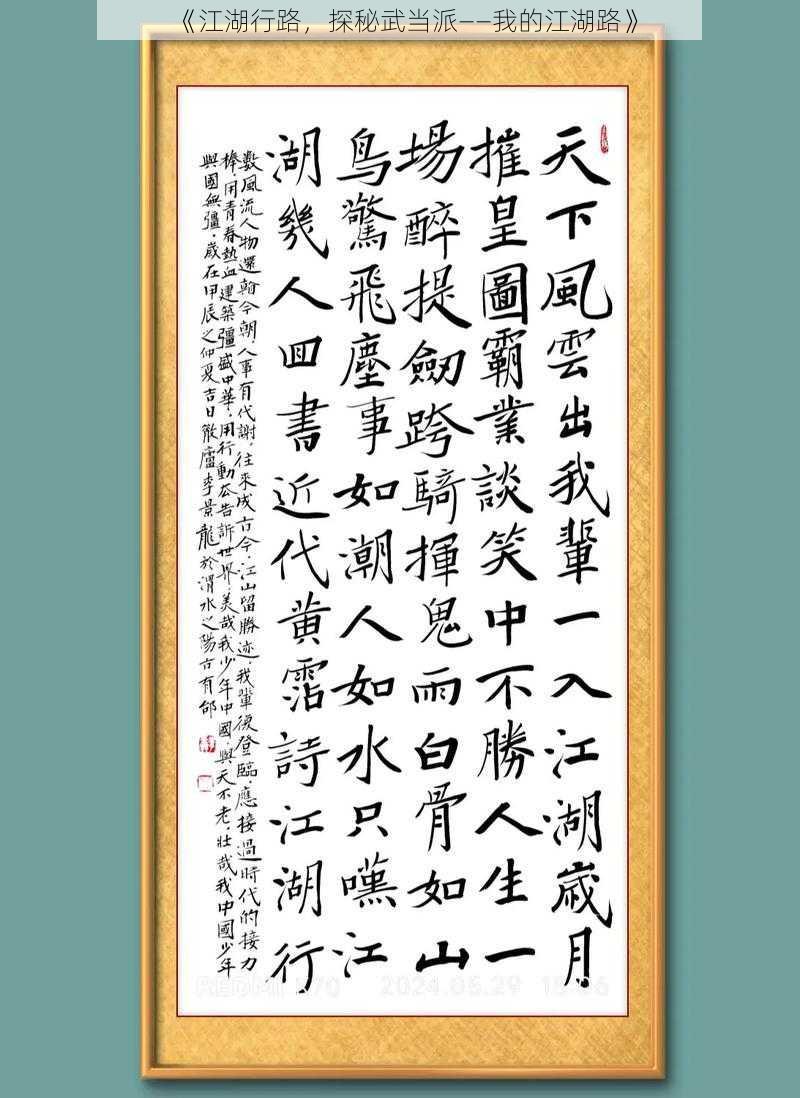 《江湖行路，探秘武当派——我的江湖路》
天下風雲出我輩一入江湖歲月
摧皇圖霸業談笑中不勝人生一
場醉提劍跨騎揮鬼雨白骨如山
鳥驚飛塵事如潮人如水只嘆江
湖幾人回書近代黄霑詩江湖行
數風流人物還翰今朝，人事有代謝，往來成古今，江山留勝迹，我輩復登臨，應接過時代的接力
棒，用青春熱血建築彊盛中華，用行動告訴世界，美哉我少年中國，與天不老，壯哉我中國少年
與國無彊，歲在甲辰之仲夏吉日散廬李景龍於渭水之陽古有邰
REDMI K70 2024.05.29